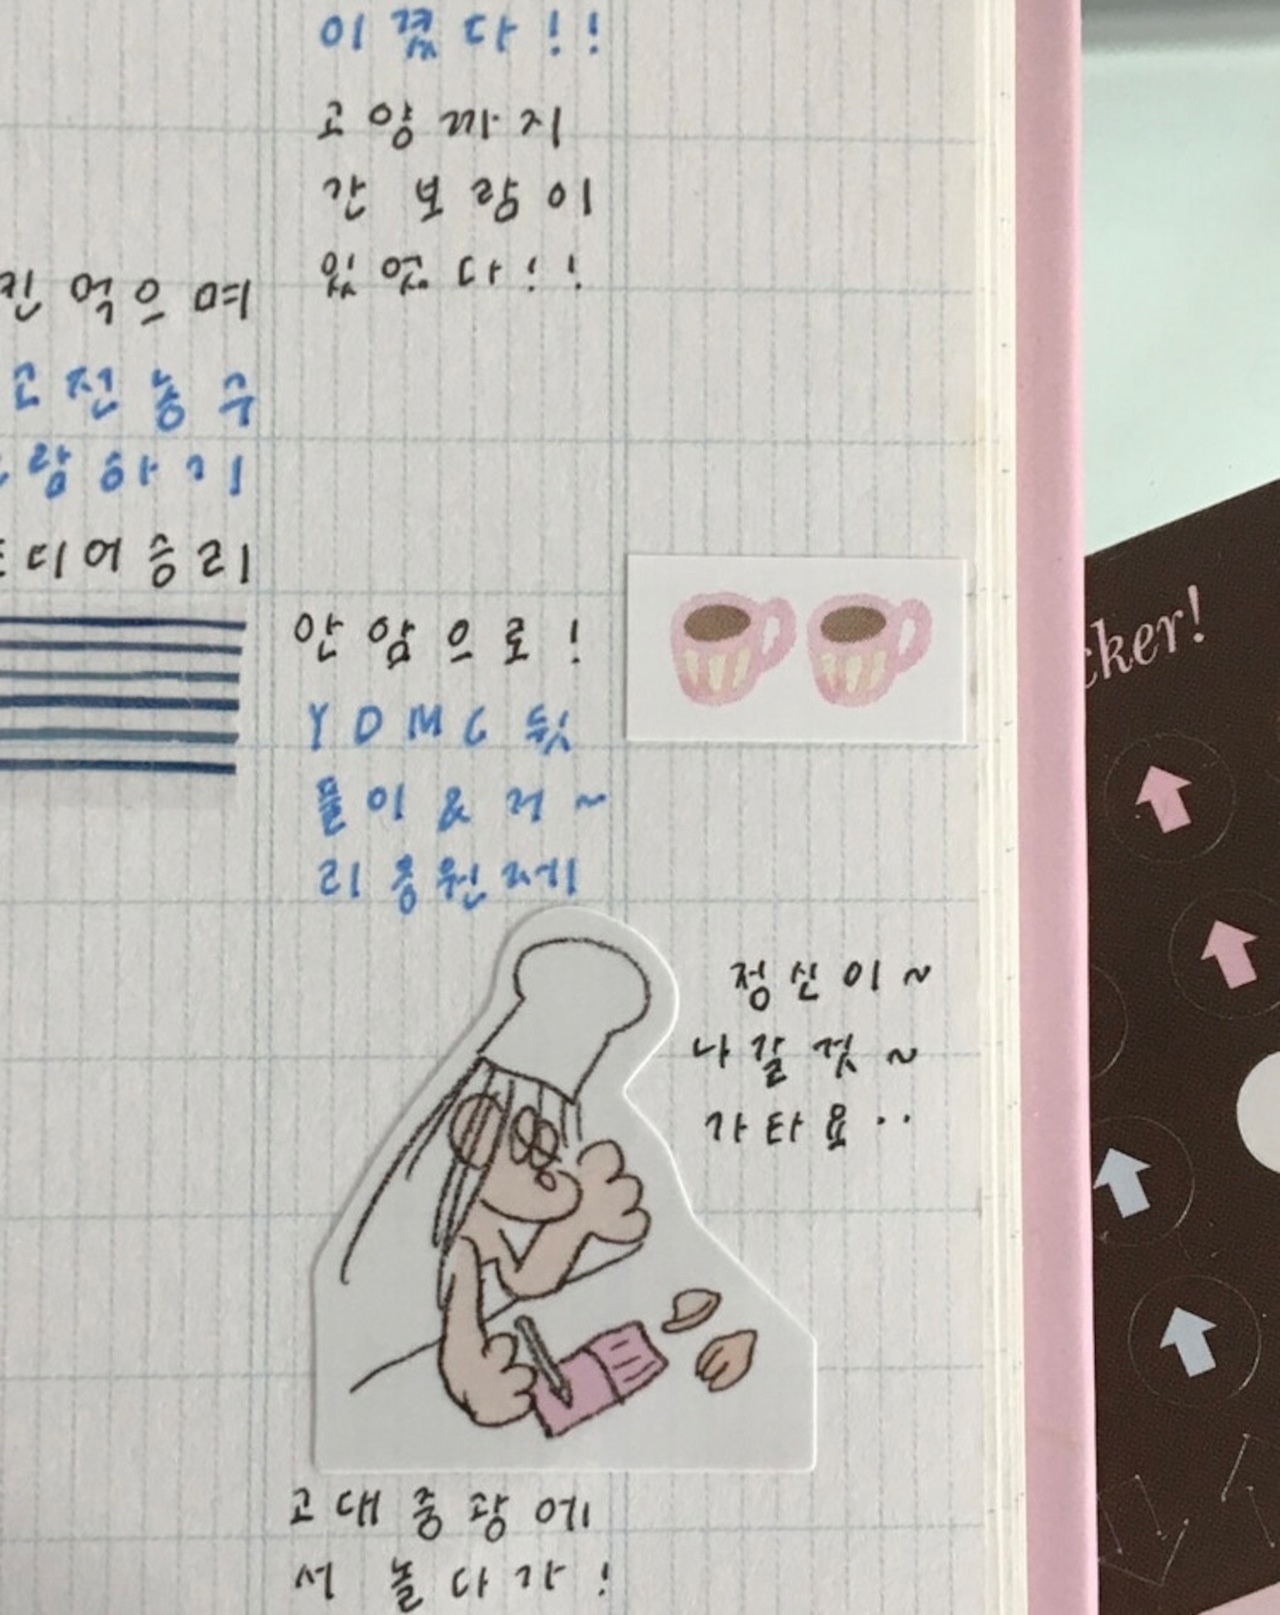 이겼다!!
고양까지
간 보람이
있었다!!
킨 먹으며
고전농구
람하기
디어승리
안암으로!
YDMC 뒷
풀이 & 저~
리 응원제
정신이~
나갈것~
가타요..
고대중광에
서 놀다가!
cker!